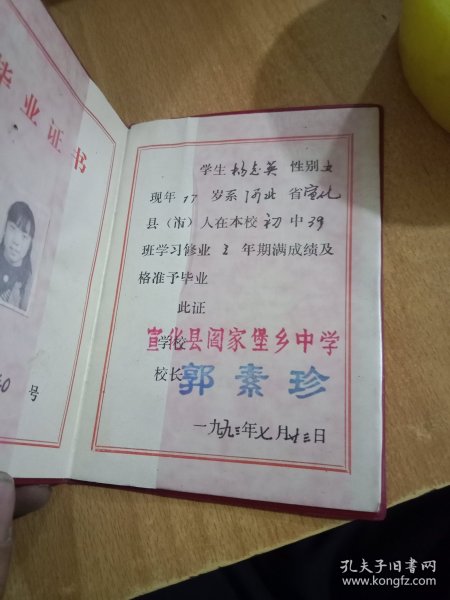 毕业证书
号
学生杨志英 性别女
现年17岁系河北省宣化
县（市）人在本校初中39
班学习修业3年期满成绩及
格准予毕业
此证
学校
宣化县阎家堡乡中学
校长
郭素珍
一九九三年七月廿三日
孔夫子旧书网
www.kongfz.com